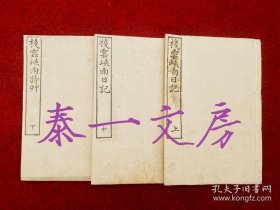 棧雲峽雨日記
上
棧雲峽雨日記
中
棧雲峽雨詩艸
下
泰一文房
孔夫子旧书网